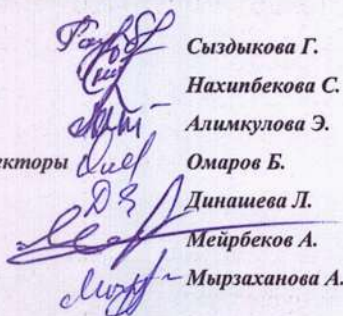 Сыздыкова Г.
Нахипбекова С.
Алимкулова Э.
екторы Омаров Б.
Динашева Л.
Мейрбеков А.
Мырзаханова А.